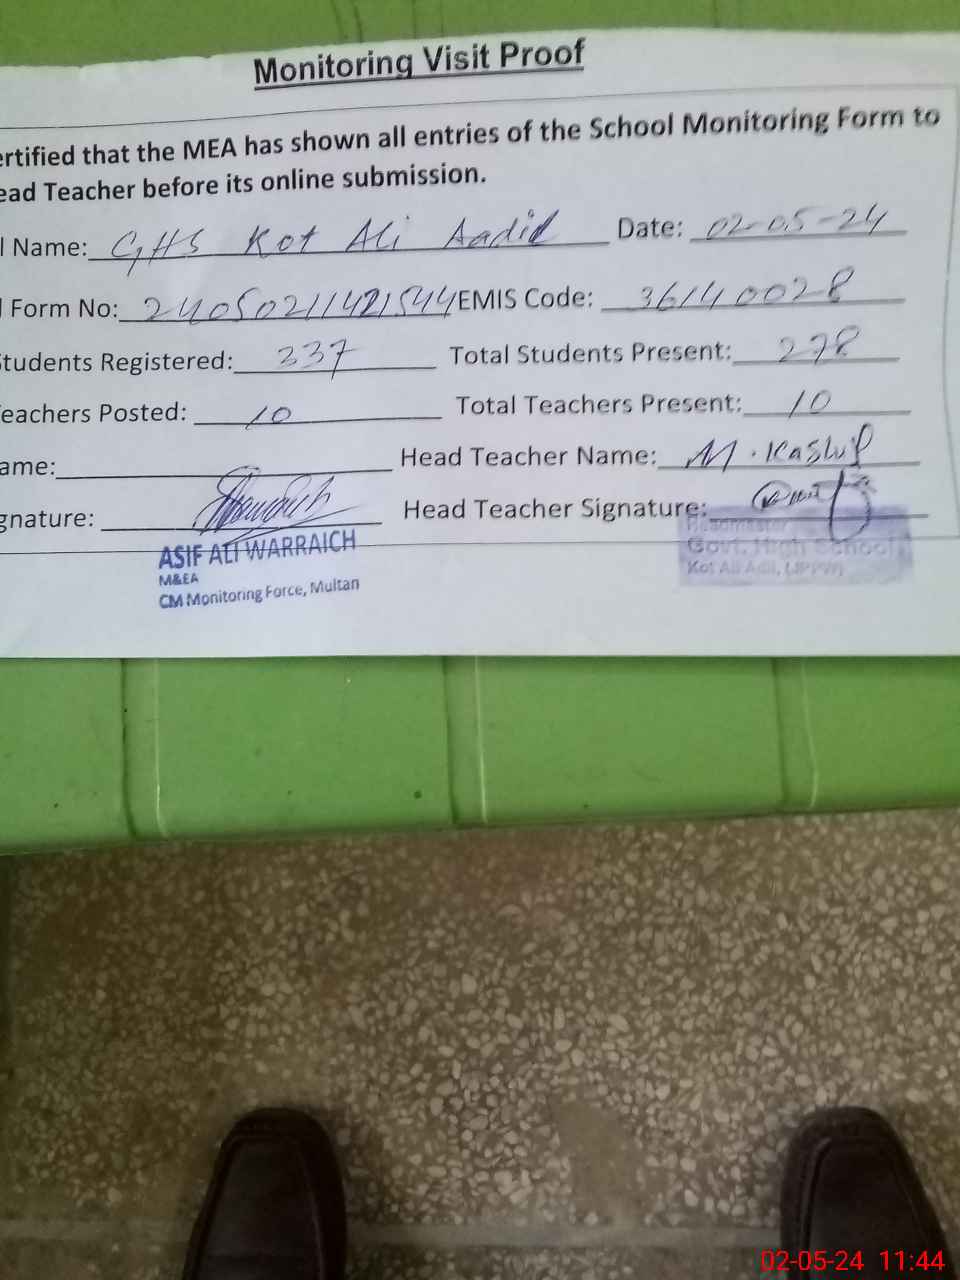 Monitoring Visit Proof
ertified that the MEA has shown all entries of the School Monitoring Form to
ead Teacher before its online submission.
l Name: GHS Kot Ali Aadil Date: 02-05-24
l Form No: 24050211421544 EMIS Code: 36140028
Students Registered: 337 Total Students Present: 278
Teachers Posted: 10 Total Teachers Present: 10
ame: Head Teacher Name: M. Kashif
gnature: Head Teacher Signature:
ASIF ALI WARRAICH
M&EA
CM Monitoring Force, Multan
Headmaster
Govt. High School
Kot Ali Adil, (JPPW)
02-05-24 11:44